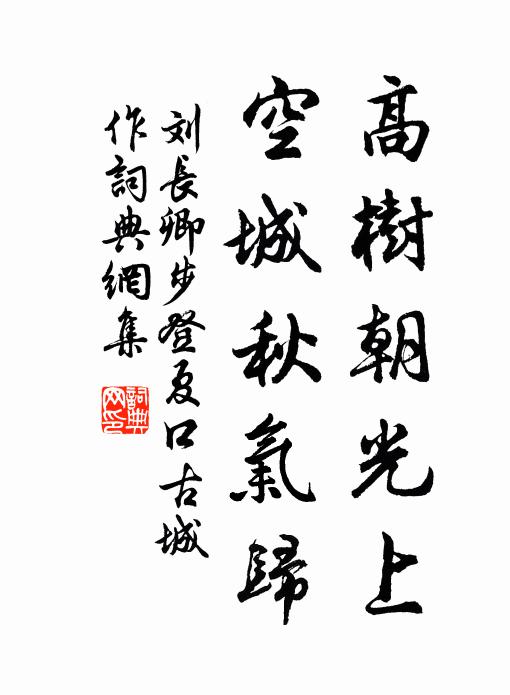 高樹朝光上
空城秋氣歸
刘長卿步登夏口古城
作詞典網集
詞典网印